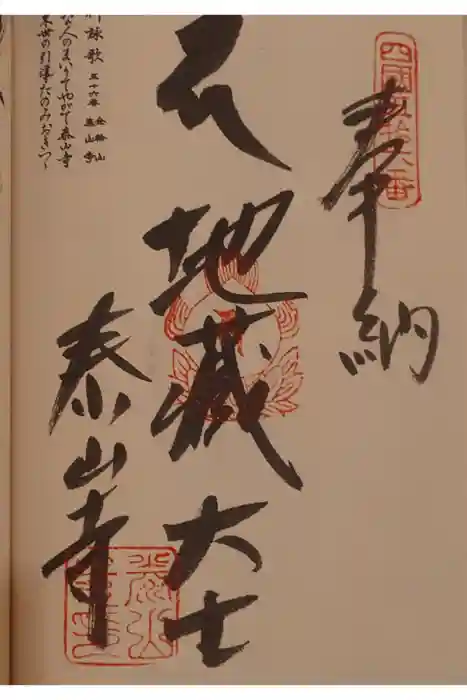 四国五拾六番
奉納
地蔵大士
泰山寺
詠歌 五十六番 金輪山
泰山寺
な人のまいりてやがて泰山寺
来世の引導たのみおきつゝ